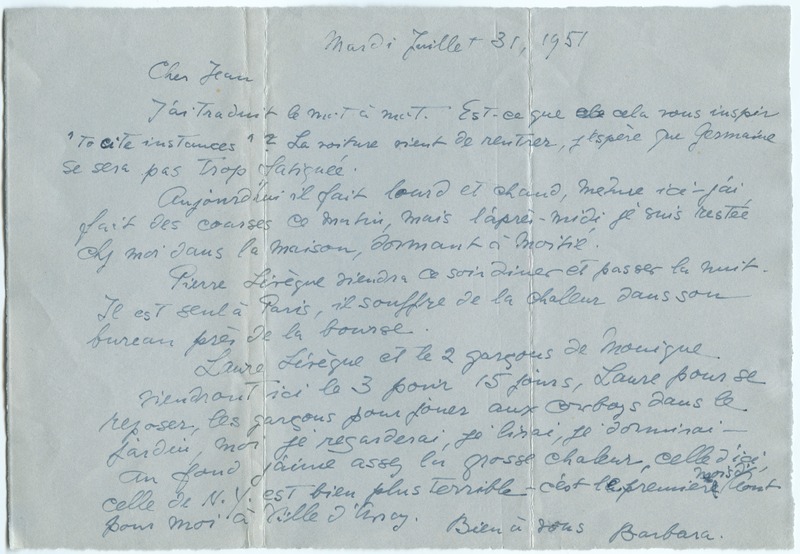 Mardi Juillet 31, 1951
Cher Jean
J'ai traduit le mot à mot. Est-ce que cela vous inspir
"To cite instances" ? La voiture vient de rentrer, j'espère que Germaine
se sera pas trop fatiguée.
Aujourd'hui il fait lourd et chaud, même ici - j'ai
fait des courses ce matin, mais l'après-midi je suis restée
chez moi dans la maison, dormant à moitié.
Pierre Lévêque viendra ce soir diner et passer la nuit.
Il est seul à Paris, il souffre de la chaleur dans son
bureau près de la bourse.
Laure Lévêque et le 2 garçons de Monique
viendront ici le 3 pour 15 jours, Laure pour se
reposer, les garçons pour jouer aux cowboys dans le
jardin, moi je regarderai, je lirai, je dormirai -
Au fond j'aime assez la grosse chaleur, celle d'ici,
celle de N.Y. est bien plus terrible - c'est le premier mois d'
pour moi à Ville d'Avray. Bien à vous Barbara.